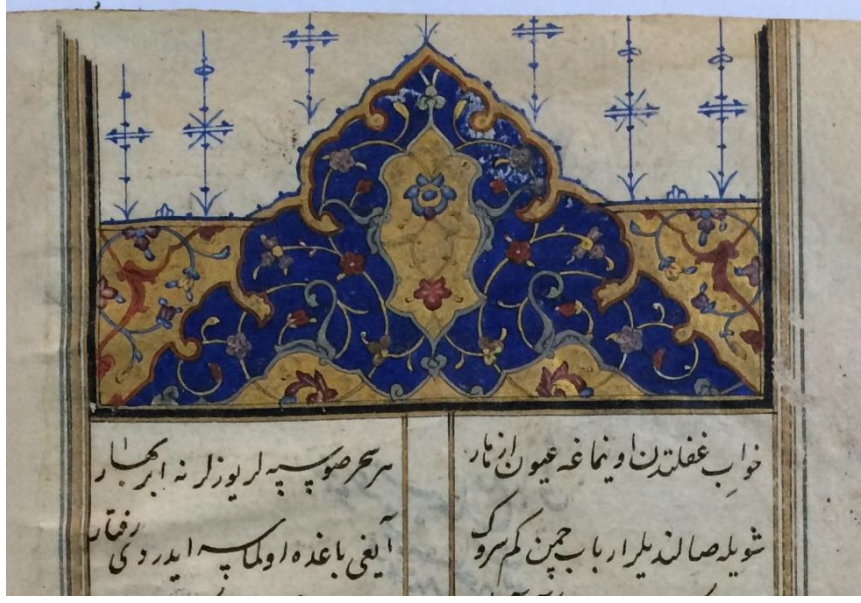 خواب غفلتدن اویانماغه عیون ازهار هر سحر صو سپه لر یوزلرنه ابر بهار
شویله صالندیلر ارباب چمن کم سروک آیغی باغده اولماسه ایدردی رفتار